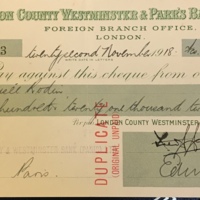 ON COUNTY WESTMINSTER & PARR'S BA
FOREIGN BRANCH OFFICE,
LONDON.
3 twenty second November 1918.
WRITE DATE IN LETTERS
ay against this cheque from o
hundred twenty one thousand
LONDON COUNTY WESTMINSTER
DUPLICATE
(ORIGINAL UNPAID
Paris.